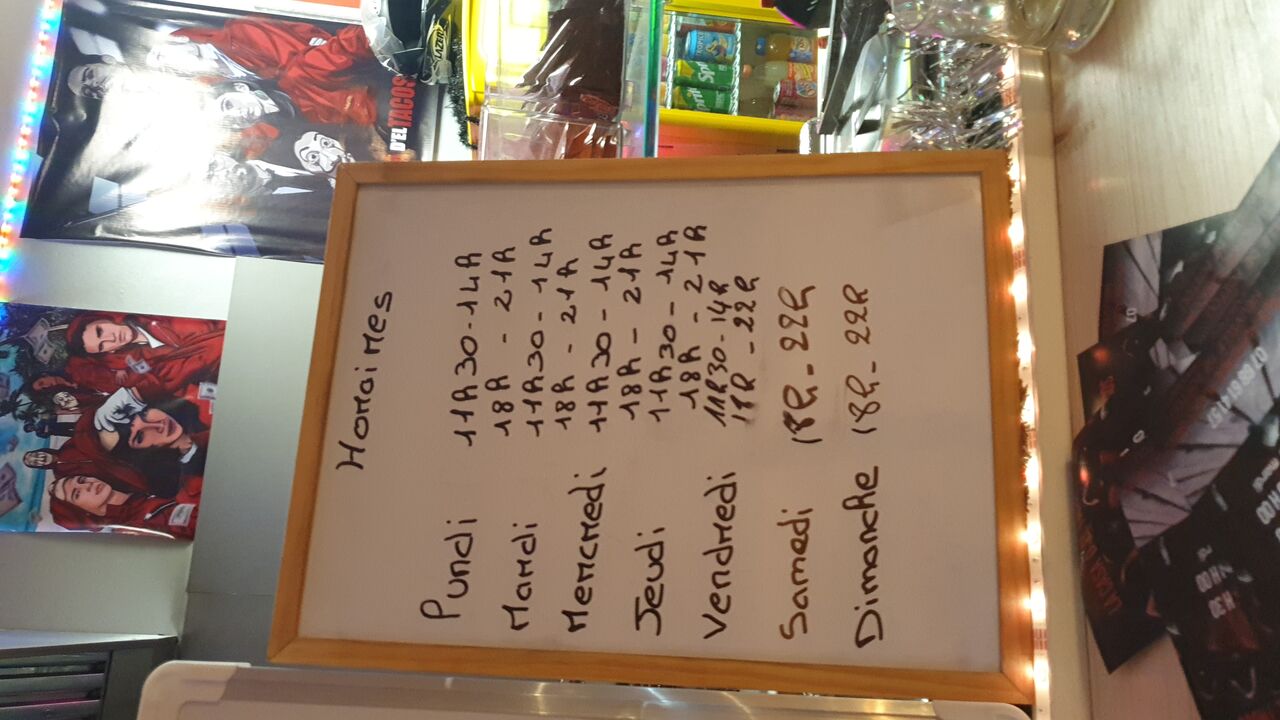 Horaires
Lundi 11h30-14h
18h - 21h
Mardi 11h30 - 14h
18h - 21h
Mercredi 11h30 - 14h
18h - 21h
Jeudi 11h30 - 14h
18h - 21h
Vendredi 11h30-14h
18h - 22h
Samedi 18h - 22h
Dimanche 18h - 22h
D'EL TACOS